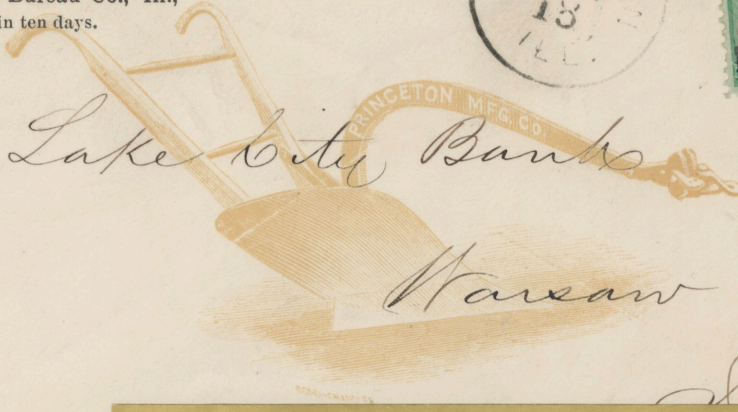 Bureau Co., Ill.,
in ten days.
13
ILL.
PRINCETON MFG. CO.
Lake City Bank
Warsaw